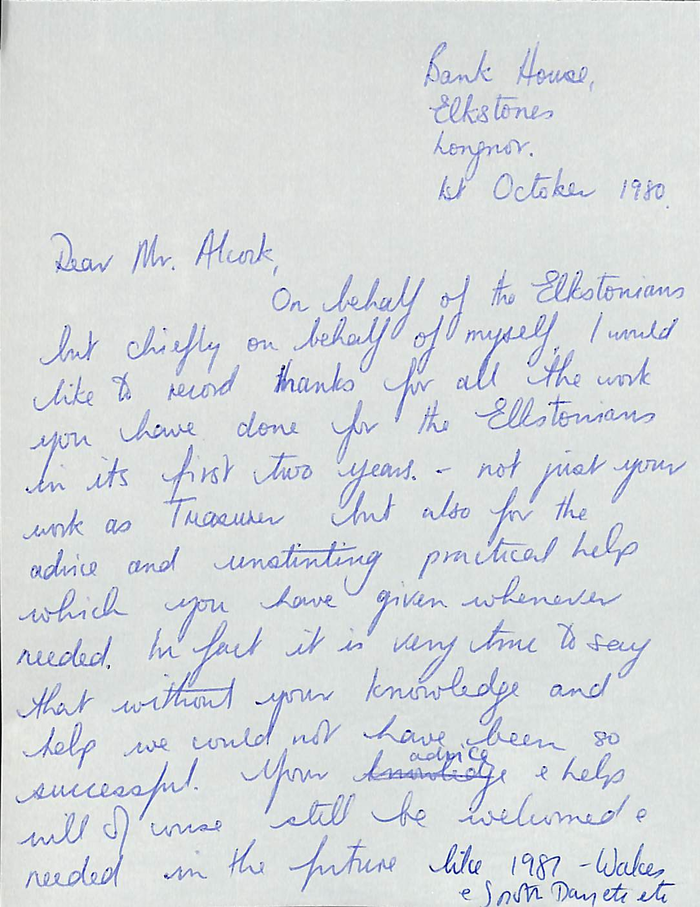 Bank House,
Elkstones
Longnor.
1st October 1980.
Dear Mr. Alcock,
On behalf of the Elkstonians
but chiefly on behalf of myself, I would
like to record thanks for all the work
you have done for the Elkstonians
in its first two years. - not just your
work as Treasurer but also for the
advice and unstinting practical help
which you have given whenever
needed. In fact it is very true to say
that without your knowledge and
help we could not have been so
advice
successful. Your knowledge e help
will of course still be welcomed e
needed in the future like 1981 - Wakes
e Sports Day etc etc